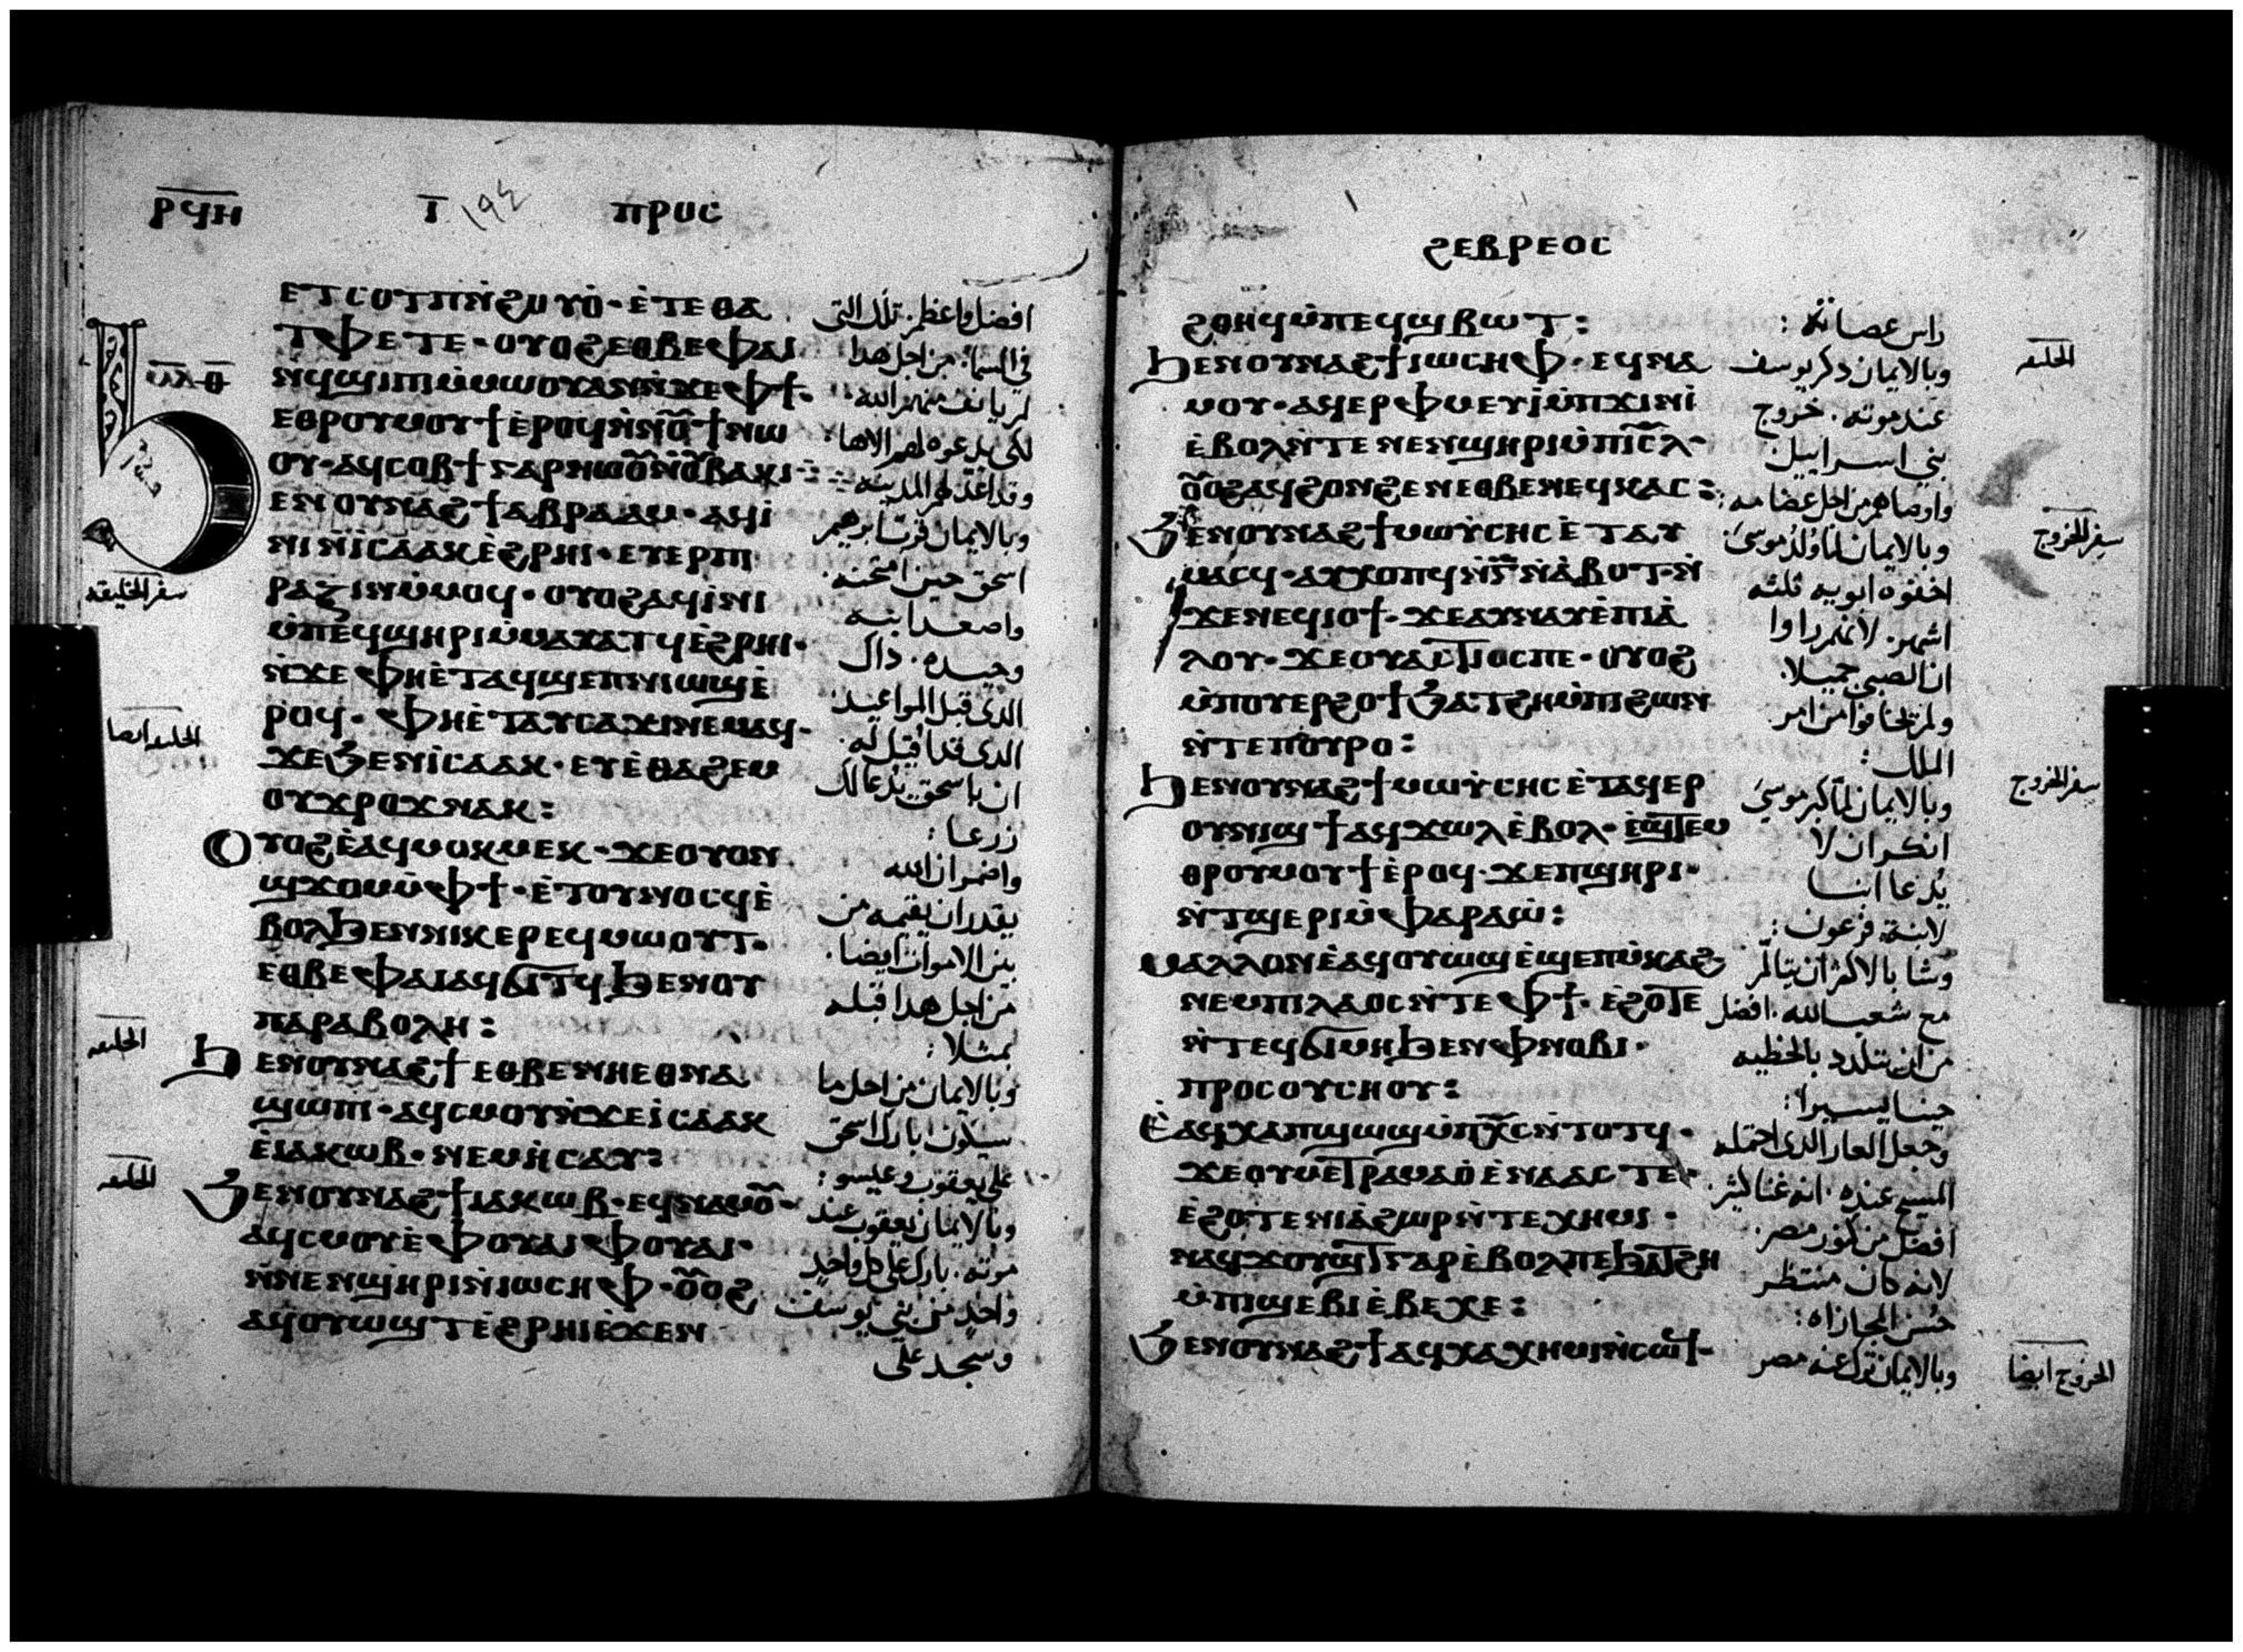 ⲣϥⲏ
ⲧ
ⲡⲣⲟⲥ
ⲉⲧⲥⲟⲧⲡⲛ̀ϩⲟⲩⲟ̀· ⲉ̀ⲧⲉⲑⲁ
ⲧⲫⲉⲧⲉ· ⲟⲩⲟϩⲉⲑⲃⲉⲫⲁⲓ
ⲛϥϣⲓⲡⲓⲙ̀ⲙⲱⲟⲩⲁⲛⲛ̀ϫⲉⲫϯ·
ⲉⲑⲣⲟⲩⲙⲟⲩϯⲉ̀ⲣⲟϥⲛ̀ⲛⲟ̅ϯⲛⲱ
ⲟⲩ· ⲁϥⲥⲟⲃϯⲅⲁⲣⲛⲱⲟ̅ⲛ̀ⲟ̅ⲃⲁⲕⲓ
ⲉⲛⲟⲩⲛⲁϩϯⲁⲃⲣⲁⲁⲙ· ⲁϥⲓ̀
ⲛⲓⲛ̀ⲓⲥⲁⲁⲕⲉ̀ϩⲣⲏⲓ· ⲉⲩⲉⲣⲡⲓ
ⲣⲁⲍⲓⲛⲙ̀ⲙⲟϥ· ⲟⲩⲟϩⲁϥⲓ̀ⲛⲓ
ⲙ̀ⲡⲉϥϣⲏⲣⲓⲙ̀ⲙⲁⲩⲁⲧϥⲉ̀ϩⲣⲏⲓ·
ⲛ̀ϫⲉⲫⲏⲉ̀ⲧⲁϥϣⲉⲡⲛⲓⲱϣⲉ̀
ⲣⲟϥ· ⲫⲏⲉ̀ⲧⲁⲩⲥⲁϫⲓⲛⲉⲙⲁϥ·
ϫⲉϧⲉⲛⲓ̀ⲥⲁⲁⲕ· ⲉⲩⲉ̀ⲑⲁϩⲉⲙ
ⲟⲩϫⲣⲟϫⲛⲁⲕ:
ⲟⲩⲟϩⲉ̀ⲁϥⲙⲟⲕⲙⲉⲕ· ϫⲉⲟⲩⲟⲛ
ϣϫⲟⲙⲙ̀ⲫϯ· ⲉ̀ⲧⲟⲩⲛⲟⲥϥⲉ̀
ⲃⲟⲗϧⲉⲛⲛⲓⲕⲉⲣⲉϥⲙⲱⲟⲩⲧ·
ⲉⲑⲃⲉⲫⲁⲓⲁϥϭⲓⲧϥϧⲉⲛⲟⲩ
ⲡⲁⲣⲁⲃⲟⲗⲏ:
ϧⲉⲛⲟⲩⲛⲁϩϯⲉⲑⲃⲉⲛⲏⲉⲑⲛⲁ
ϣⲱⲡⲓ· ⲁϥⲥⲙⲟⲩⲛ̀ϫⲉⲓ̀ⲥⲁⲁⲕ
ⲉ̀ⲓⲁⲕⲱⲃ· ⲛⲉⲙⲏ̀ⲥⲁⲩ:
ϧⲉⲛⲟⲩⲛⲁϩϯⲓⲁⲕⲱⲃ· ⲉϥⲛⲁⲙⲟ̅·
ⲁϥⲥⲙⲟⲩⲉ̀ⲫⲟⲩⲁⲓⲫⲟⲩⲁⲓ·
ⲛ̀ⲛⲉⲛϣⲏⲣⲓⲛ̀ⲓⲱⲥⲏⲫ· ⲟ̅ⲟϩ
ⲁϥⲟⲩⲱϣⲧⲉ̀ϩⲣⲏⲓⲉ̀ϫⲉⲛ
افضل واعظم تلك التى
فى السما. من اجل هدا
لم يانف منهم الله
لكى يدعوه لهم الاها
وقد اعد لهم المدينه
وبالايمان قرب ابرهيم
اسحق حين امتحنه
واصعد ابنه
وحيده. داك
الدى قبل المواعيد
الدى قد قيل له
ان باسحق يدعا لك
زرعا:
واضمر ان الله
يقدر ان يقيمه من
بين الاموات ايضا.
من اجل هدا قبله
بمثل:
وبالايمان من اجل ما
سيكون بارك اسحق
على يعقوب وعيسو:
وبالايمان يعقوب عند
موته. بارك على كل واحد
واحد من بنى يوسف
وسجد على
سفر الخليقه
الخليقه ايضا
الخليقه
الخليقه
ϩⲉⲃⲣⲉⲟⲥ
ϩⲑⲏϥⲙ̀ⲡⲉϥϣⲃⲱⲧ:
ϧⲉⲛⲟⲩⲛⲁϩϯⲓⲱⲥⲏⲫ· ⲉϥⲛⲁ
ⲙⲟⲩ· ⲁϥⲉⲣⲫⲙⲉⲩⲓ̀ⲙ̀ⲡϫⲓⲛⲓ̀
ⲉ̀ⲃⲟⲗⲛ̀ⲧⲉⲛⲉⲛϣⲏⲣⲓⲙ̀ⲡⲓⲥ̅ⲗ·
ⲟ̅ⲟϩⲁϥϩⲟⲛϩⲉⲛⲉⲑⲃⲉⲛⲉϥⲕⲁⲥ:
ϧⲉⲛⲟⲩⲛⲁϩϯⲙⲱⲩ̀ⲥⲏⲥⲉ̀ⲧⲁⲩ
ⲙⲁⲥϥ· ⲁⲩⲭⲟⲡϥⲛ̀ⲅ̅ⲛ̀ⲁ̀ⲃⲟⲧ·ⲛ̀
ϫⲉⲛⲉϥⲓⲟϯ· ϫⲉⲁⲩⲛⲁⲩⲉ̀ⲡⲓⲁ̀
ⲗⲟⲩ· ϫⲉⲟⲩⲁⲥⲧⲓⲟⲥⲡⲉ· ⲟⲩⲟϩ
ⲙ̀ⲡⲟⲩⲉⲣϩⲟϯϧⲁⲧϩⲏⲙ̀ⲡⲓϩⲱⲛ
ⲛ̀ⲧⲉⲡⲟⲩⲣⲟ:
ϧⲉⲛⲟⲩⲛⲁϩϯⲙⲱⲩ̀ⲥⲏⲥⲉ̀ⲧⲁϥⲉⲣ
ⲟⲩⲛⲓϣϯⲁϥϫⲱⲗⲉ̀ⲃⲟⲗ· ⲉ̀ϣⲧⲉⲙ
ⲑⲣⲟⲩⲙⲟⲩϯⲉ̀ⲣⲟϥ· ϫⲉⲡϣⲏⲣⲓ·
ⲛ̀ⲧϣⲉⲣⲓⲙ̀ⲫⲁⲣⲁⲱ̀:
ⲙⲁⲗⲗⲟⲛⲉ̀ⲁϥⲟⲩⲱϣⲉ̀ϣⲉⲡⲙ̀ⲕⲁϩ
ⲛⲉⲙⲡⲓⲗⲁⲟⲥⲛ̀ⲧⲉⲫϯ· ⲉ̀ϩⲟⲧⲉ
ⲛ̀ⲧⲉϥϭⲓⲙⲏϧⲉⲛⲫⲛⲟⲃⲓ·
ⲡⲣⲟⲥⲟⲩⲥⲏⲟⲩ:
ⲉ̀ⲁϥⲭⲁⲡϣⲱϣⲙ̀ⲡⲭ̅ⲥⲛ̀ⲧⲟⲧϥ·
ϫⲉⲟⲩⲙⲉⲧⲣⲁⲙⲁⲟ̀ⲉ̀ⲛⲁⲁⲥⲧⲉ·
ⲉ̀ϩⲟⲧⲉⲛⲓⲁ̀ϩⲱⲣⲛ̀ⲧⲉⲭⲏⲙⲓ·
ⲛⲁϥϫⲟⲩϣⲧⲅⲁⲣⲉ̀ⲃⲟⲗⲡⲉϧⲁⲧϩⲏ
ⲙ̀ⲡⲓϣⲉⲃⲓⲉ̀ⲃⲉⲭⲉ:
ϧⲉⲛⲟⲩⲛⲁϩϯⲁϥⲭⲁⲭⲏⲙⲓⲛ̀ⲥⲱϥ·
راس عصاته:
وبالايمان دكر يوسف
عند موته. خروج
بنى اسراييل
واوصاهم من اجل عضامه:
وبالايمان لما ولد موسى
اخفوه ابويه ثلثه
اشهر. لانهم راوا
ان الصبى جميلا.
ولم يخافوا من امر
الملك:
وبالايمان لما كبر موسى
انكر ان لا
يدعا ابنا
لابنة فرعون:
وشا بالاكثر ان يتالم
مع شعب الله. افضل
من ان يتلدد بالخطيه
حينا يسيرا:
وجعل العار الدى احتمله
المسيح عنده. انه غنا كثير.
افضل من كنوز مصر.
لانه كان منتظر
حسن المجازاه:
وبالايمان ترك عنه مصر
الخليقه
سفر الخروج
سفر الخروج
الخروج ايضا